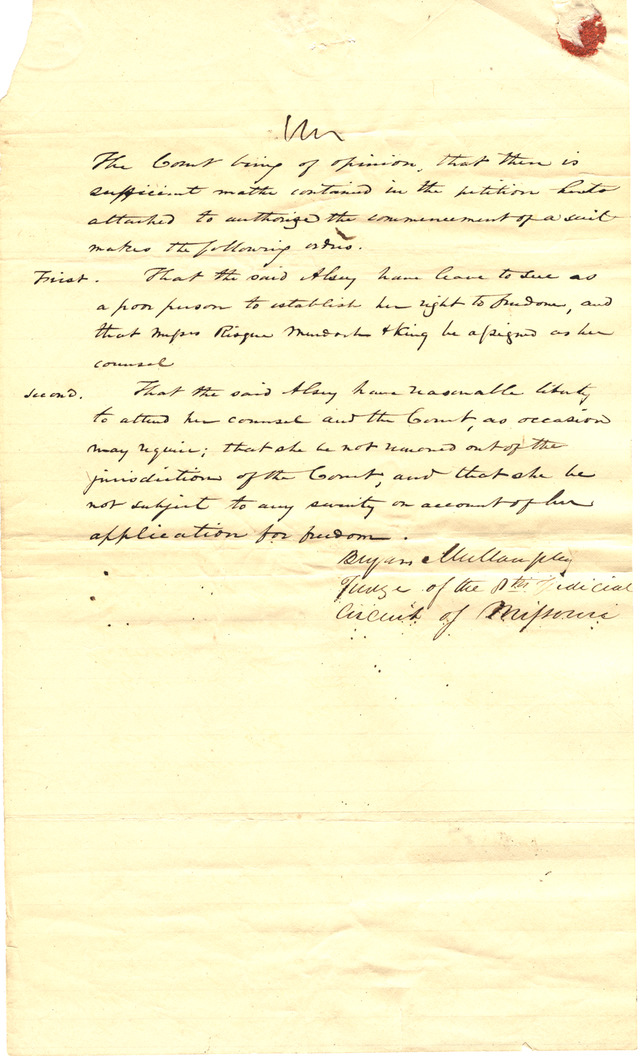 The Court being of opinion, that there is
sufficient matter contained in the petition hereto
attached to authorize the commencement of a suit
makes the following orders.
First. That the said Alsey have leave to sue as
a poor person to establish her right to freedom, and
that Messrs Risque Murdoch & King be assigned as her
counsel
Second. That the said Alsey have reasonable liberty
to attend her counsel and the Court, as occasion
may require; that she be not removed out of the
jurisdiction of the Court, and that she be
not subject to any severity on account of her
application for freedom.
Bryan Mullanphy
Judge of the 8th Judicial
Circuit of Missouri